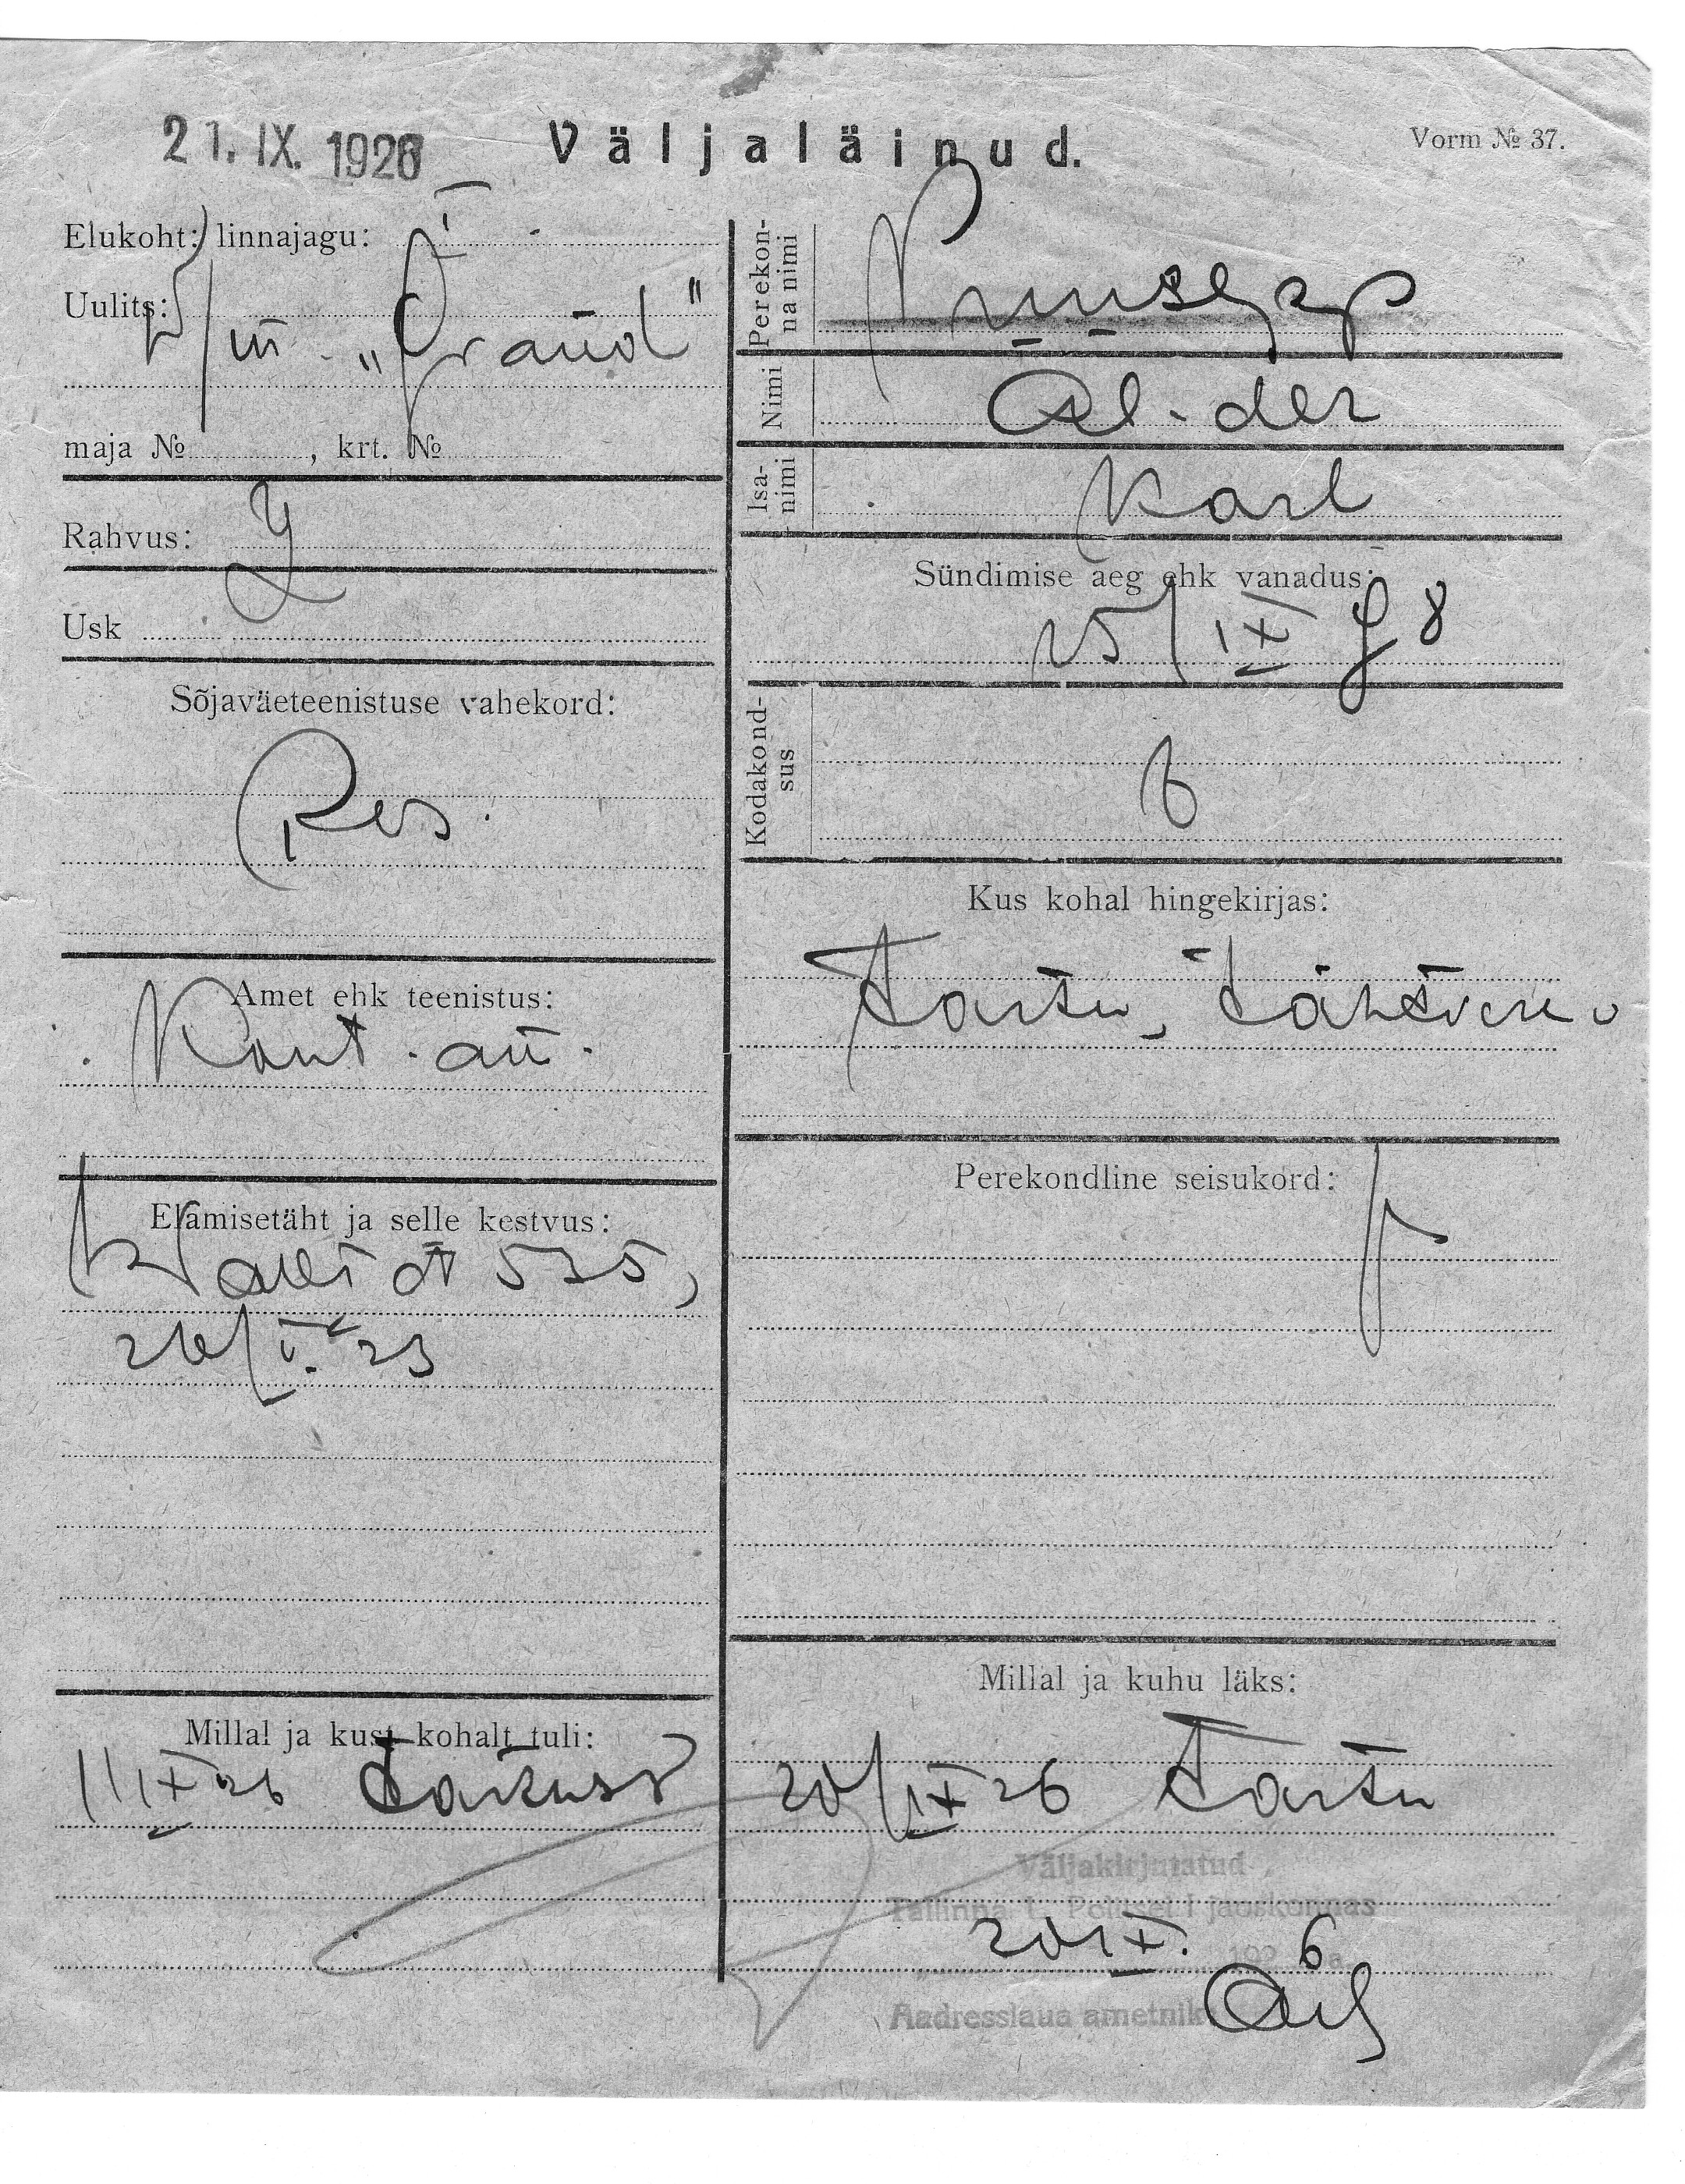 21. IX. 1926 Väljaläinud. Vorm № 37.
Elukoht: linnajagu: I
Uulits:
„Grand"
maja № , krt. №
Rahvus:
Usk
Sõjaväeteenistuse vahekord:
Res.
Amet ehk teenistus:
Kont. am.
Elamisetäht ja selle kestvus:
535,
26/V. 23
Millal ja kust kohalt tuli:
11 IX 26 Tartust
Perekonna nimi
Nimi
Al-der
Isanimi
Karl
Sündimise aeg ehk vanadus:
25/IX 98
Kodakondsus
Kus kohal hingekirjas:
Tartu, Tähtvere v
Perekondline seisukord:
Millal ja kuhu läks:
20/IX 26 Tartu
Väljakirjutatud
Tallinna L. Politsei I jaoskonnas
20 IX. 192 6 a.
Aadresslaua ametnik